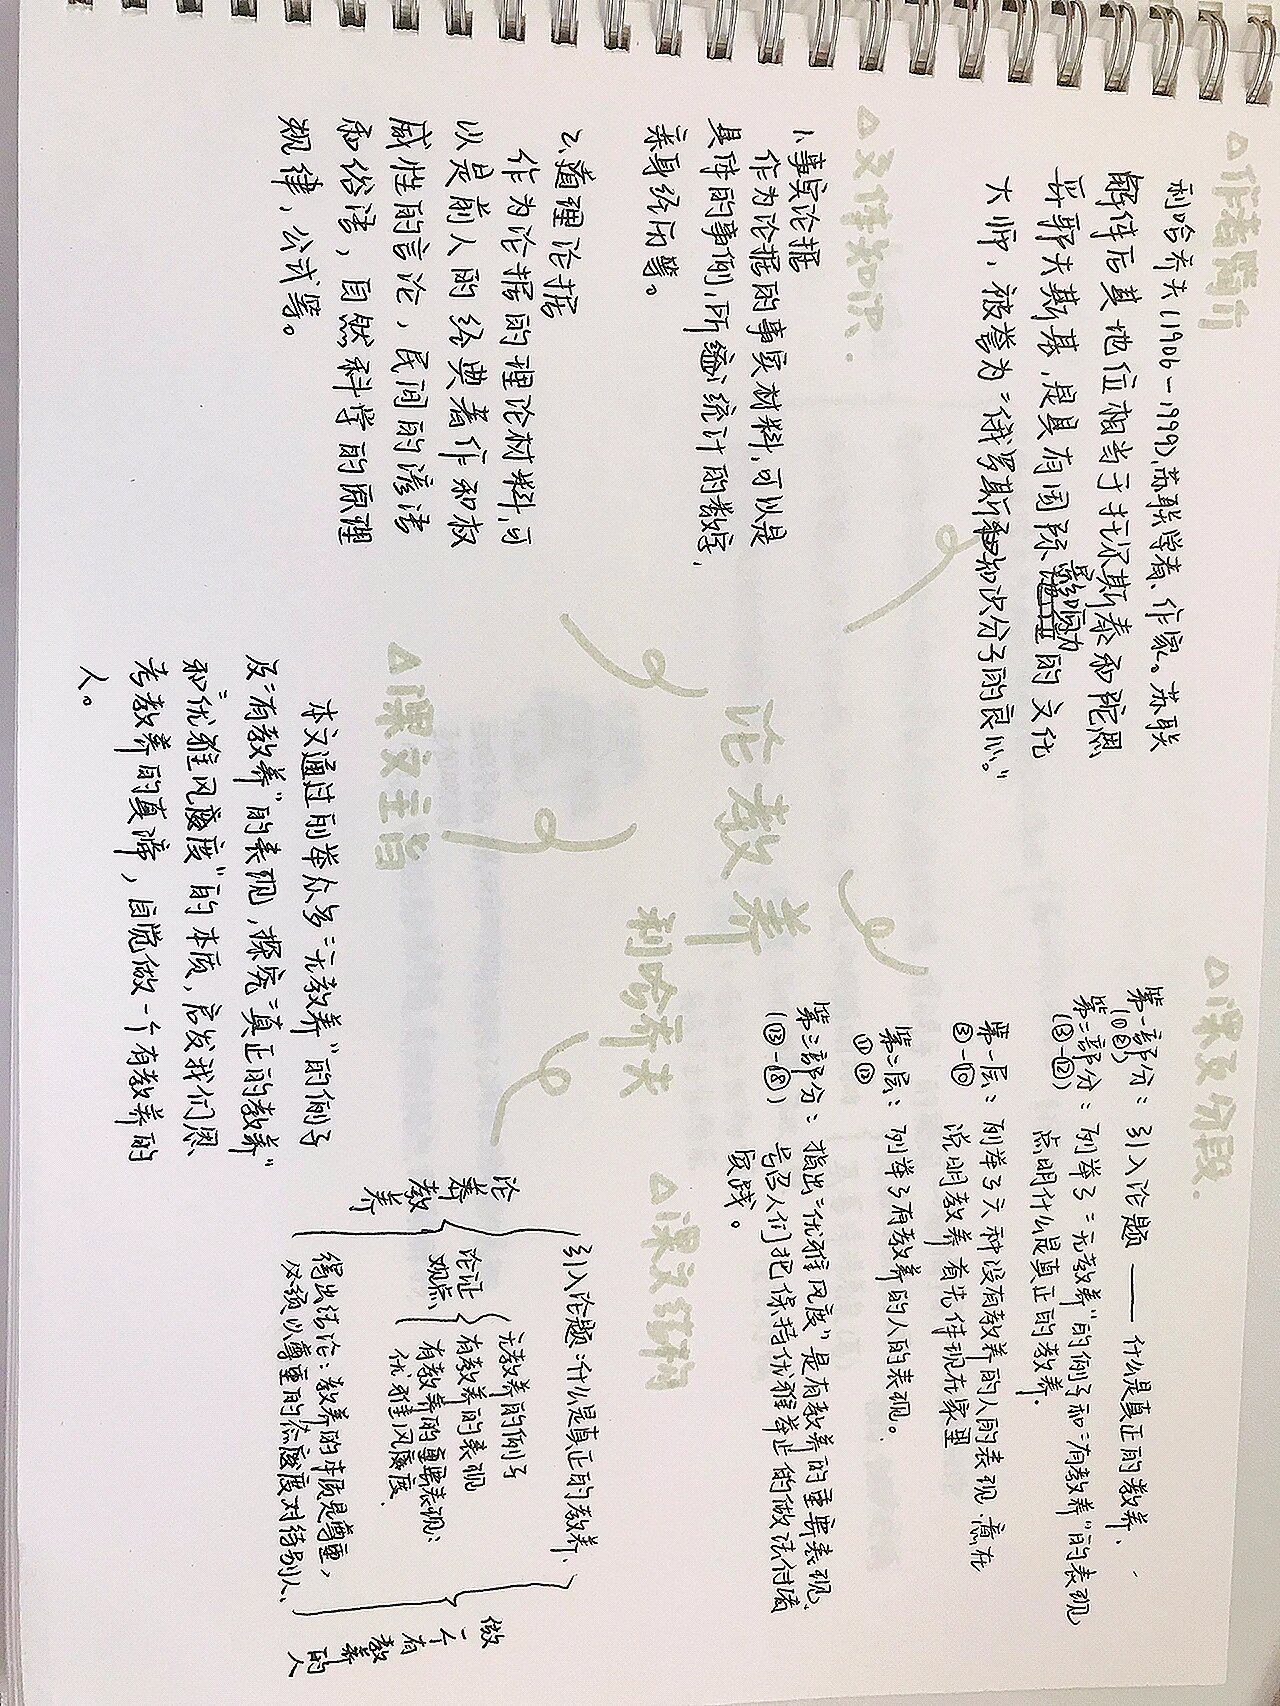 △作者简介
利哈乔夫(1906-1999),苏联学者、作家。苏联
解体后其地位相当于托尔斯泰和陀思
妥耶夫斯基,是具有国际影响力的文化
大师,被誉为“俄罗斯知识分子的良心。”
△文体知识.
1、事实论据
作为论据的事实材料,可以是
具体的事例,所 统计的数字,
亲身经历等。
2、道理论据
作为论据的理论材料,可
以是前人的经典著作和权
威性的言论,民间的谚语
和俗语,自然科学的原理
规律,公式等。
论教养
利哈乔夫
△课文主旨
本文通过列举众多“无教养”的例子
及“有教养”的表现,探究“真正的教养”
和“优雅风度”的本质,启发我们思
考教养的真谛,自觉做一个有教养的
人。
△课文分段.
第一部分:引入论题——什么是真正的教养.
(①②)
第二部分:列举了“无教养”的例子和“有教养”的表现
(③-⑫) 点明什么是真正的教养.
第一层:列举了六种没有教养的人的表现.意在
③-⑩ 说明教养首先体现在家里
第二层:列举了有教养的人的表现。
⑪⑫
第三部分:指出“优雅风度”是有教养的重要表现,
(⑬-⑱) 号召人们把保持优雅举止的做法付诸
实践。
△课文结构
论教养
引入论题:什么是真正的教养、
论证观点
无教养的例子
有教养的表现
有教养的重要表现:
优雅风度.
得出结论:教养的本质是尊重,
必须以尊重的态度对待别人.
做一个有教养的人